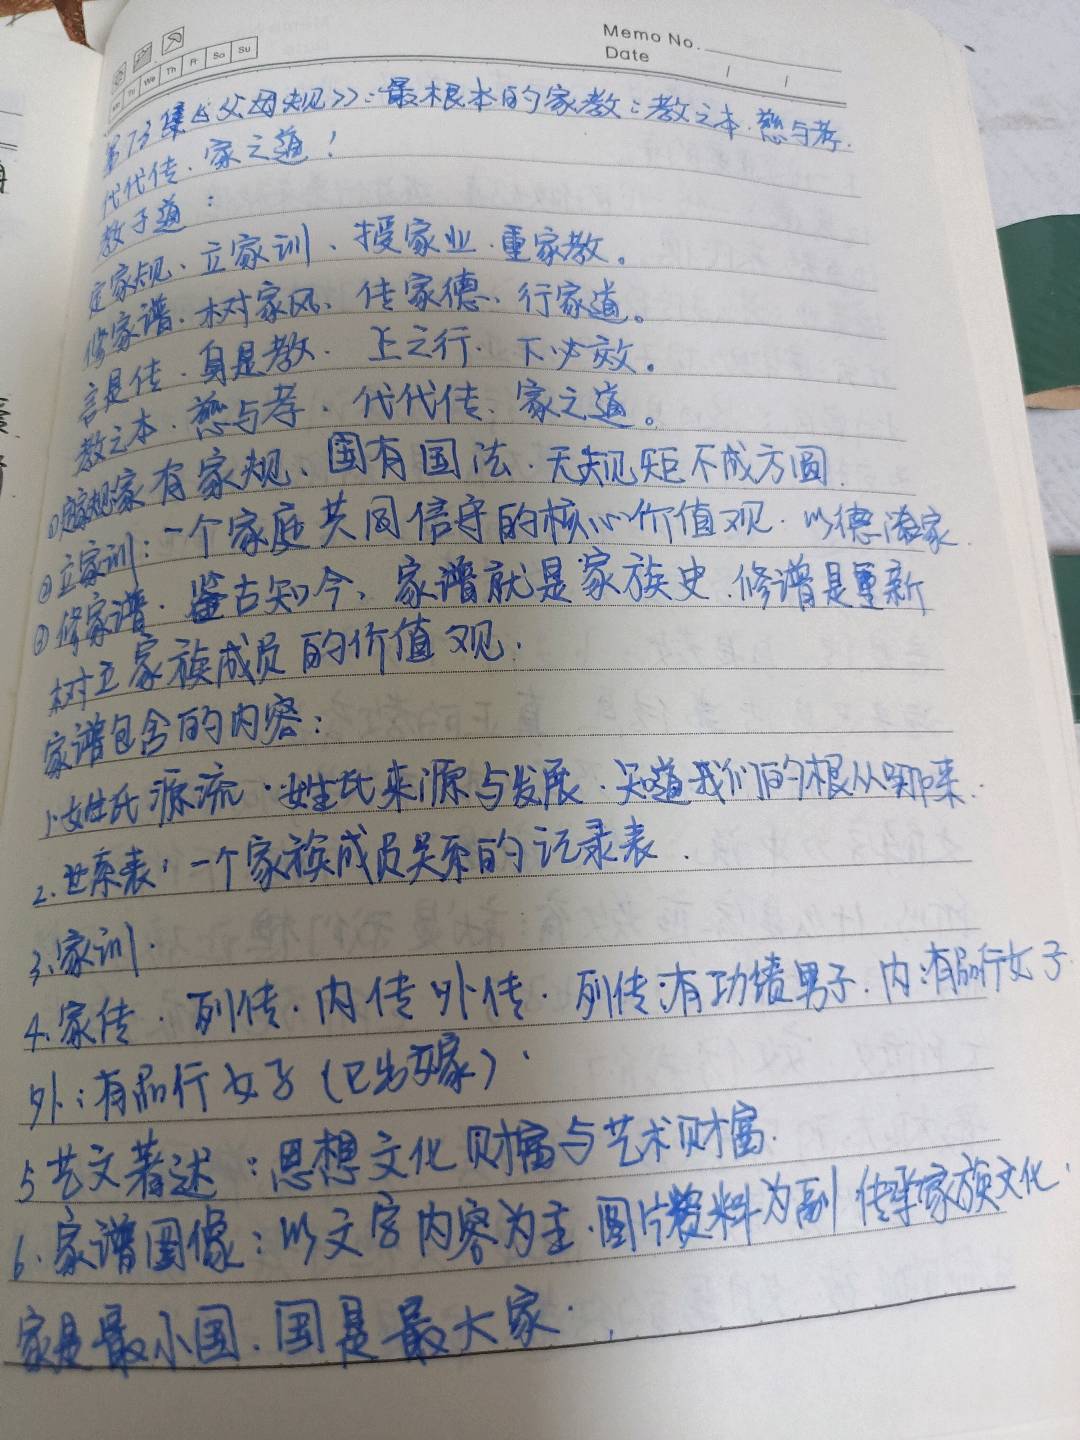 Memo No.
Date
Mo Tu We Th Fr Sa Su
第73集《父母规》：最根本的家教：教之本、慈与孝.
代代传、家之道！
教子道：
定家规、立家训、授家业、重家教。
修家谱、树家风、传家德、行家道。
言是传、身是教、上之行、下必效。
教之本、慈与孝、代代传、家之道。
①定家规家有家规、国有国法、无规矩不成方圆.
②立家训：一个家庭共同信守的核心价值观、以德家.
③修家谱、鉴古知今、家谱就是家族史、修谱是重新
树立家族成员的价值观.
家谱包含的内容：
1.姓氏源流、姓氏来源与发展、知道我们的根从哪来.
2.世系表：一个家族成员关系的记录表.
3.家训.
4.家传、列传、内传外传、列传:有功绩男子、内:有品行女子
外:有品行女子(已出嫁).
5艺文著述：思想文化财富与艺术财富.
6.家谱图像：以文字内容为主、图片资料为副传承家族文化.
家是最小国、国是最大家.